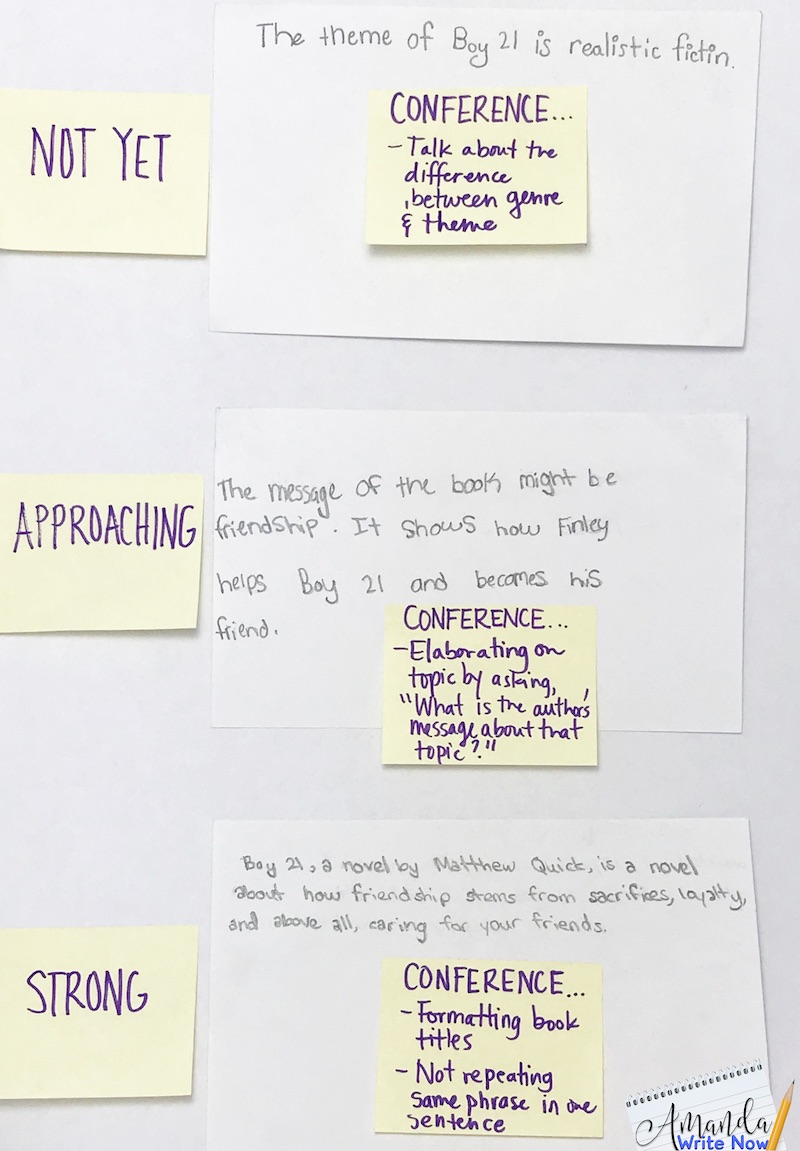 The theme of Boy 21 is realistic fictin.
NOT YET
CONFERENCE...
- Talk about the
difference
between genre
& theme
The message of the book might be
friendship. It shows how Finley
helps Boy 21 and becomes his
friend.
APPROACHING
CONFERENCE...
- Elaborating on
topic by asking,
"What is the author's
message about that
topic?"
Boy 21, a novel by Matthew Quick, is a novel
about how friendship stems from sacrifices, loyalty,
and above all, caring for your friends.
STRONG
CONFERENCE...
- Formatting book
titles
- Not repeating
same phrase in one
sentence
Amanda
Write Now